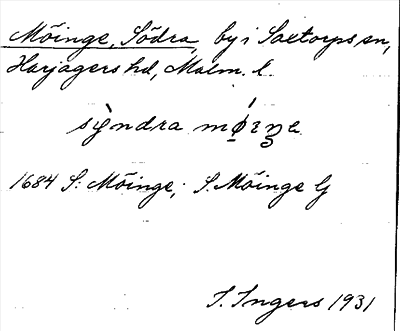 Möinge, Södra, by i Saxtorps sn,
Harjagers hd, Malm. l.
1684 S: Möinge; S. Möinge G
I. Ingers 1931